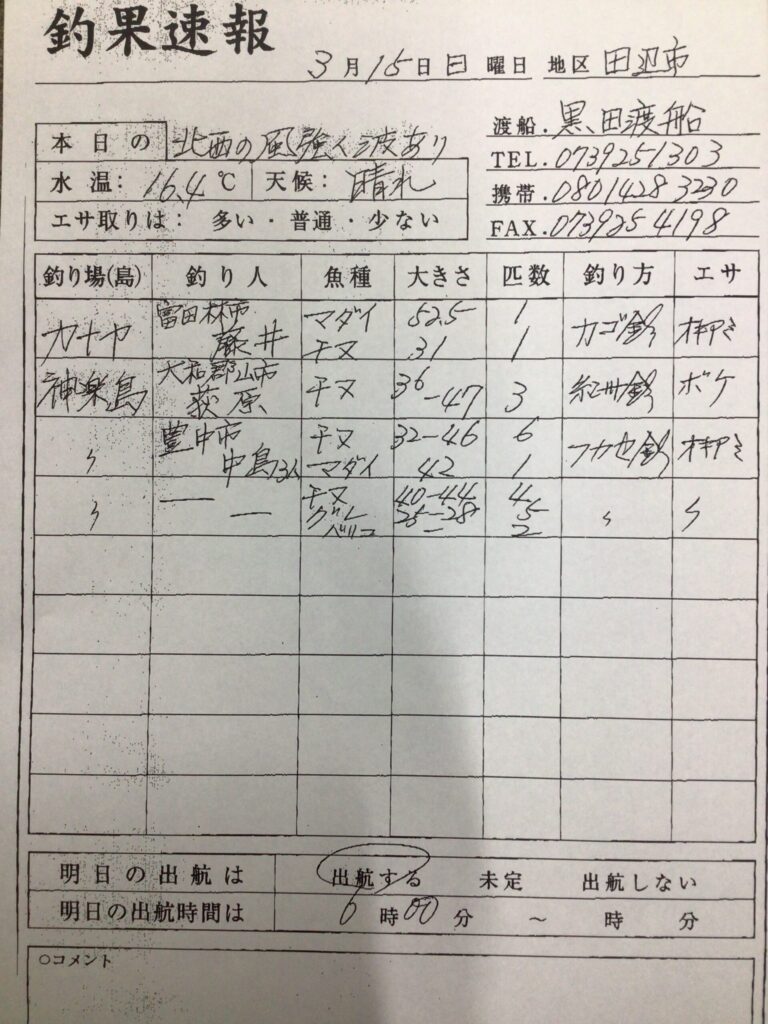 釣果速報
3月15日日曜日 地区 田辺市
渡船.黒田渡船
TEL.0739251303
携帯.08014283230
FAX.0739254198
本日の 北西の風強く波あり
水温: 16.4℃ 天候: 晴れ
エサ取りは: 多い・普通・少ない
釣り場(島) 釣り人 魚種 大きさ 匹数 釣り方 エサ
カナヤ 富田林市 藤井 マダイ 52.5 1 カゴ釣 オキアミ
チヌ 31 1
神楽島 大和郡山市 荻原 チヌ 36-47 3 紀州釣 ボケ
〃 豊中市 中島3人 チヌ 32-46 6 フカセ釣 オキアミ
マダイ 42 1
〃 — — チヌ 40-44 4 〃 〃
グレ 25-28 5
- 2
明日の出航は 出航する 未定 出航しない
明日の出航時間は 6時00分 ~ 時 分
○コメント